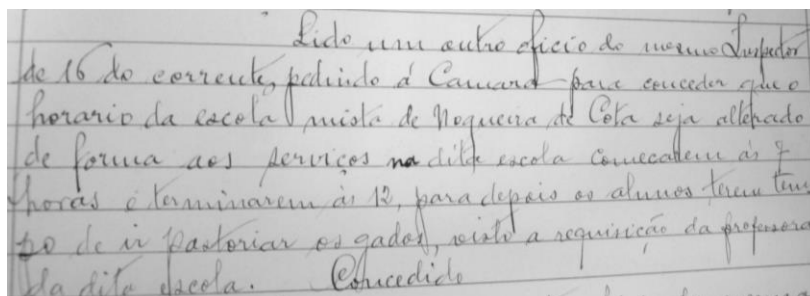 Lido um outro oficio do mesmo Inspector
de 16 do corrente, pedindo á Camara para conceder que o
horario da escola mista de Nogueira de Cota seja alterado
de forma aos serviços na dita escola começarem ás 7
horas e terminarem ás 12, para depois os alunos terem tem
po de ir pastoriar os gados, visto a requisição da professora
da dita escola. Concedido